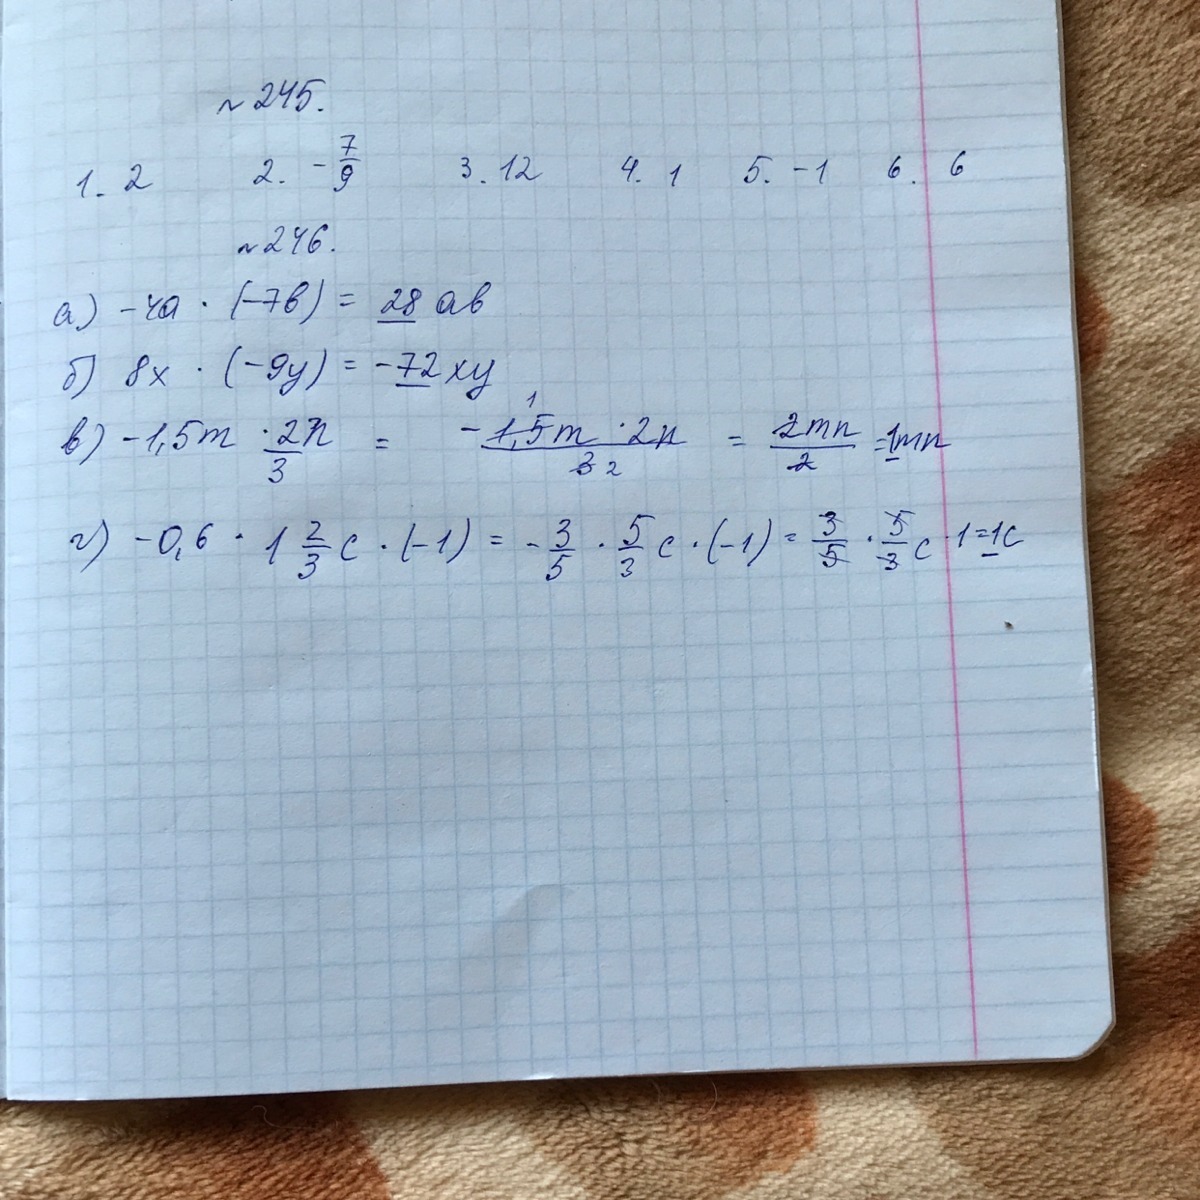 № 245.
1. 2 2. -7/9 3. 12 4. 1 5. -1 6. 6
№ 246.
а) -4a · (-7b) = 28 ab
б) 8x · (-9y) = -72 xy
в) -1,5m · 2n/3 = -1,5m · 2n/3 1 2 = 2mn/2 = 1mn
г) -0,6 · 1 2/3 c · (-1) = -3/5 · 5/3 c · (-1) = 3/5 · 5/3 c · 1 = 1c